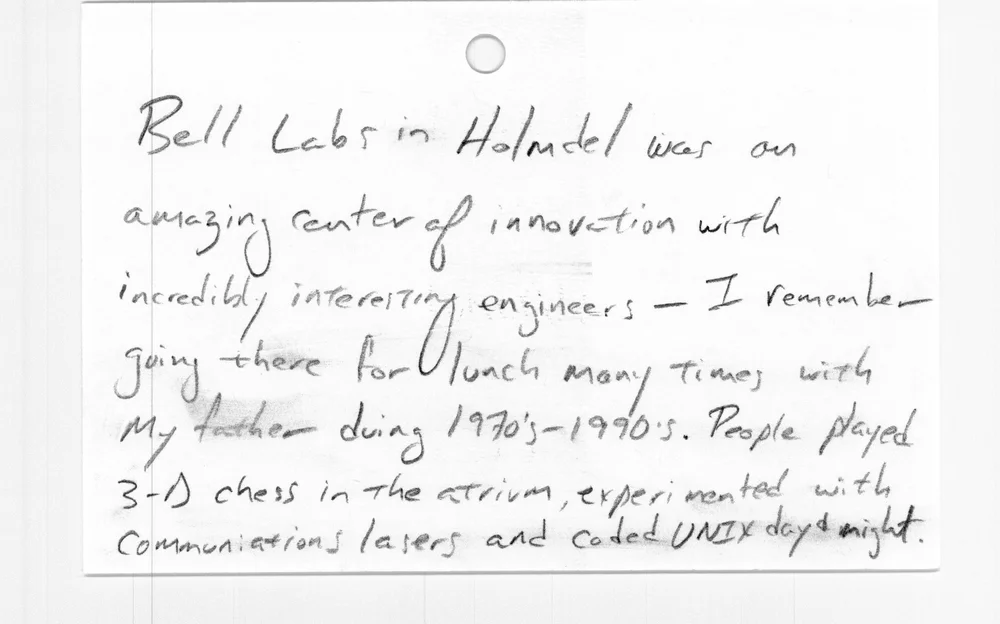 Bell Labs in Holmdel was an
amazing center of innovation with
incredibly interesting engineers — I remember
going there for lunch many times with
My father duing 1970's-1990's. People played
3-D chess in the atrium, experimented with
Communiations lasers and coded UNIX day & might.